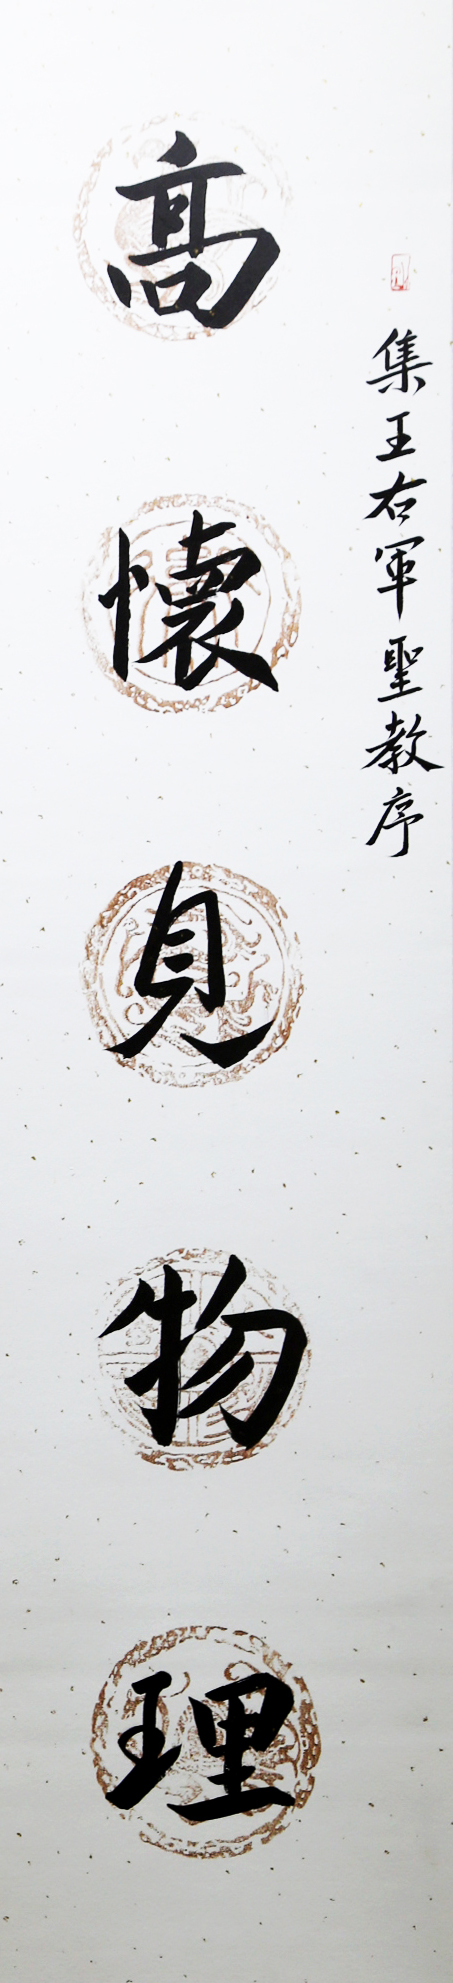 集王右軍聖教序
高懷見物理